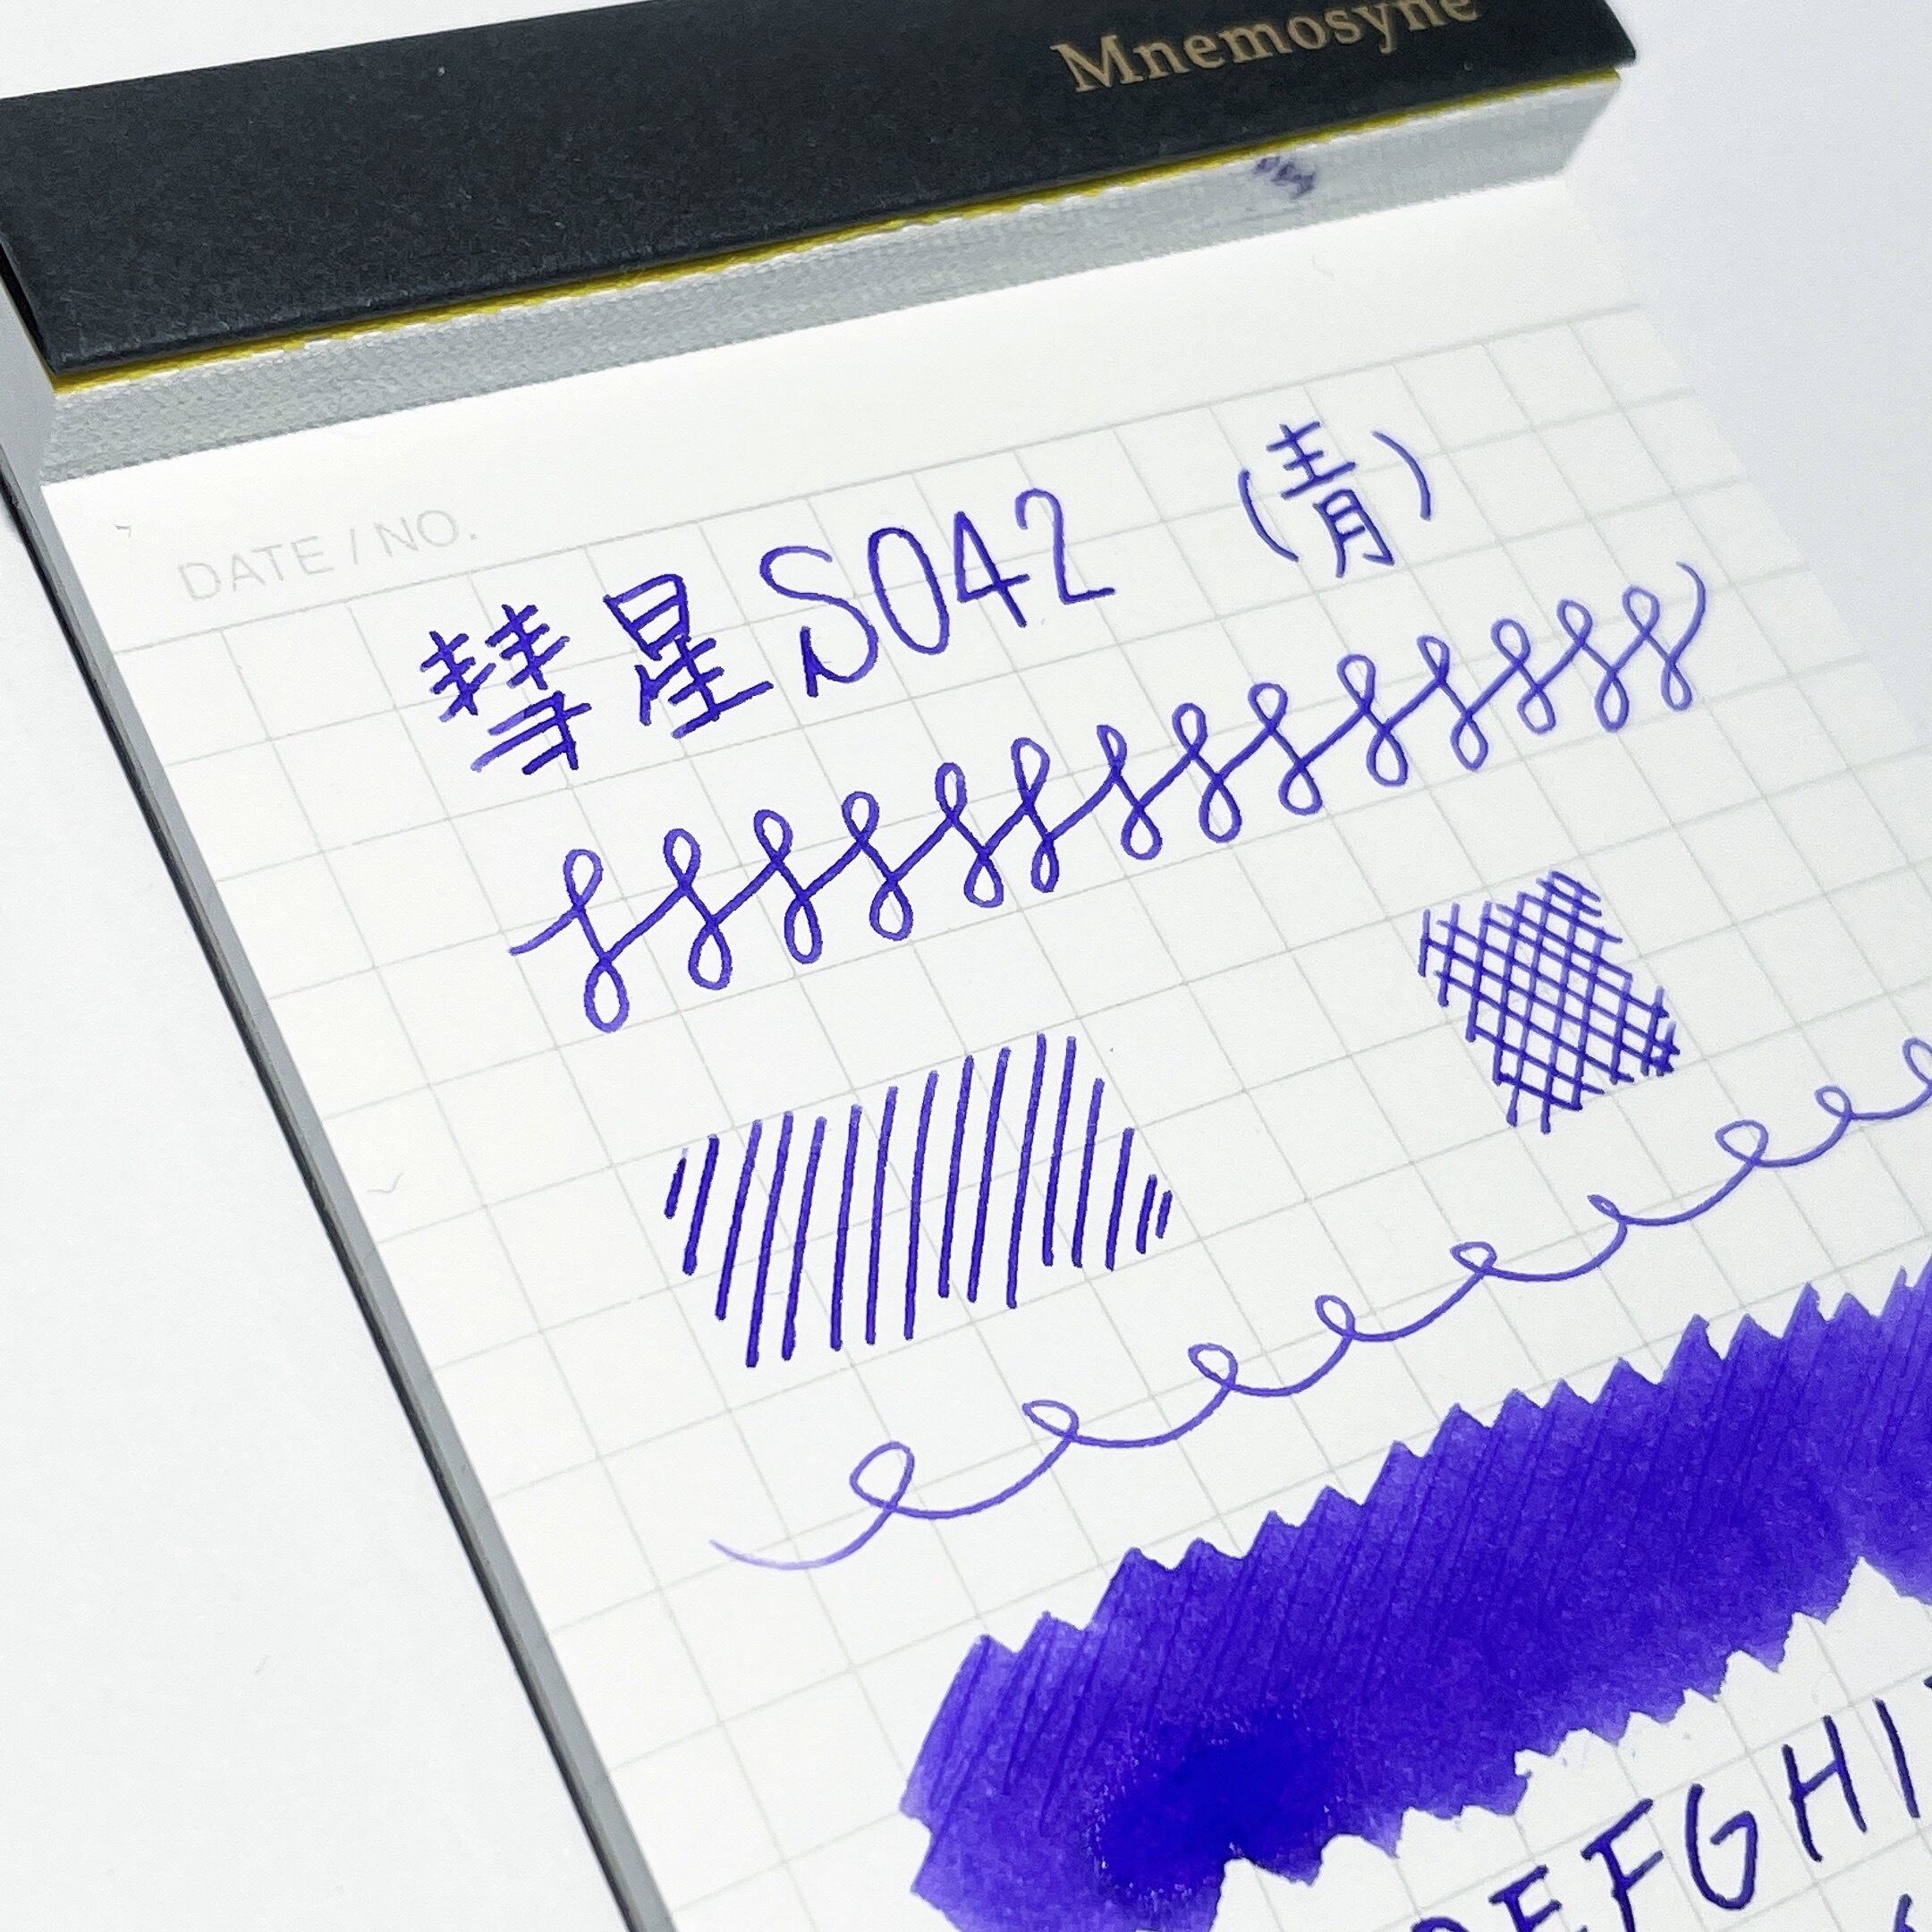 Mnemosyne
DATE / NO.
彗星S042 (青)
EFGHI